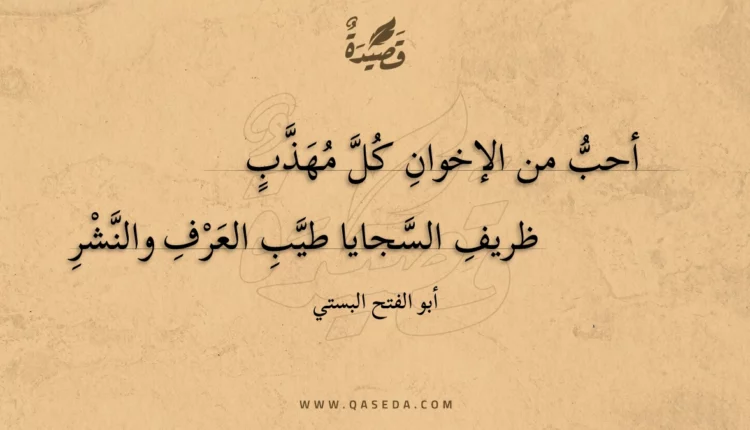 قَصِيْدَةٌ
أحبُّ من الإخوانِ كُلَّ مُهَذَّبٍ
ظريفِ السَّجايا طيَّبِ العَرْفِ والنَّشْرِ
أبو الفتح البستي
WWW.QASEDA.COM